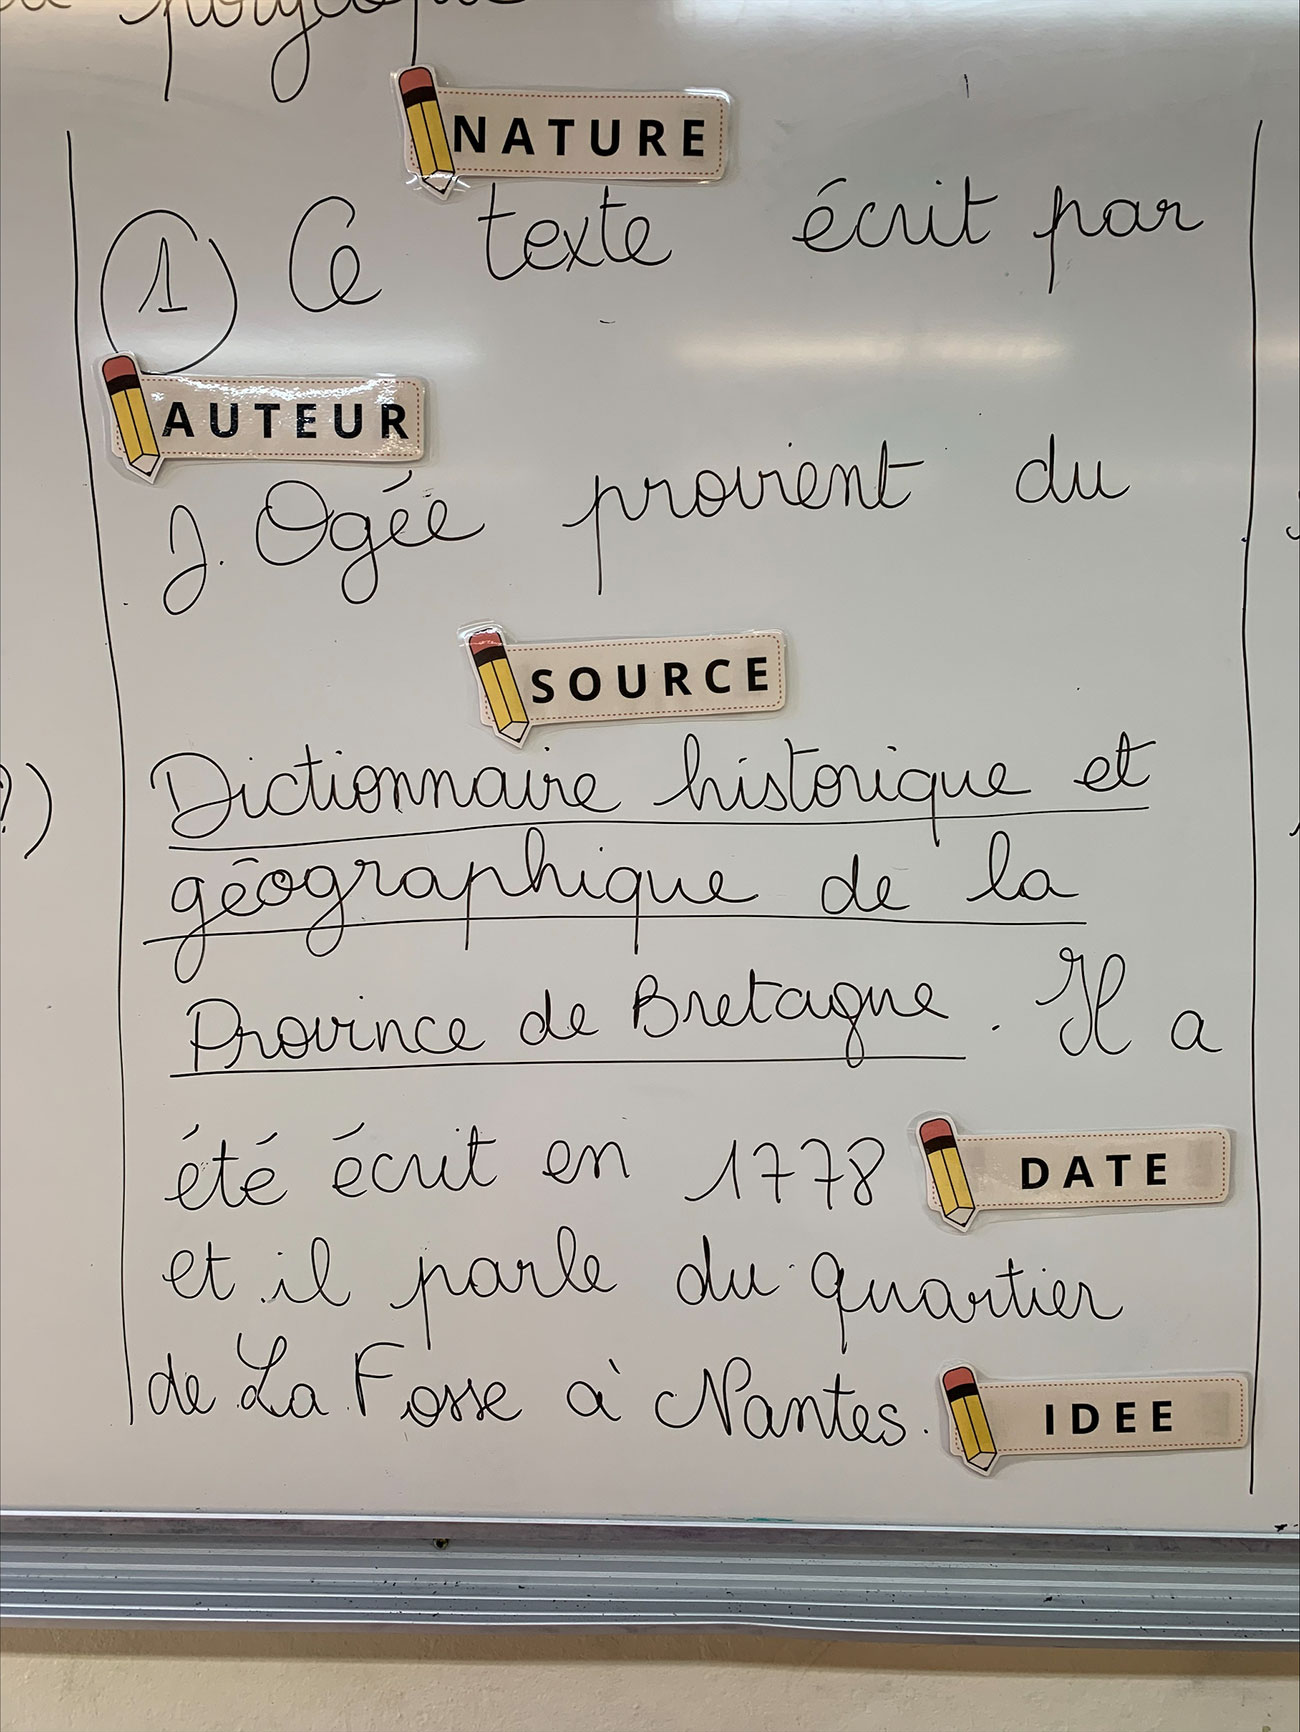 NATURE
1 Ce texte écrit par
AUTEUR
J. Ogée provient du
SOURCE
Dictionnaire historique et
géographique de la
Province de Bretagne. Il a
été écrit en 1778 DATE
et il parle du quartier
de La Fosse à Nantes. IDEE
?)